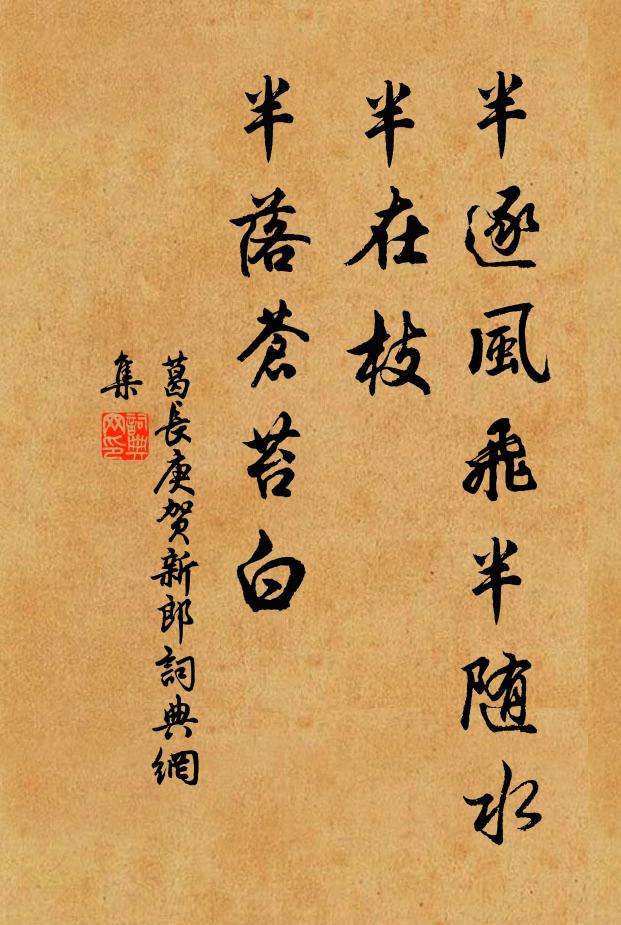 半逐風飛半随水
半在枝
半落蒼苔白
葛長庚贺新郎詞典網
集
詞典网印